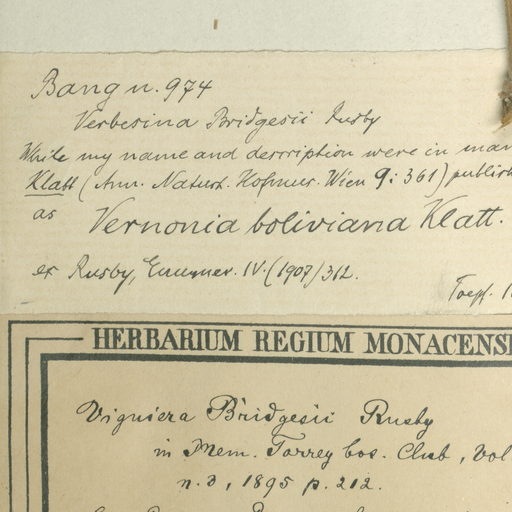 Bang n. 974
Verbesina Bridgesii Rusby
While my name and description were in man
Klatt (Ann. Naturh. Hofmus. Wien 9: 361) publish
as Vernonia boliviana Klatt.
ex Rusby, Enumer. IV. (1907) 312.
Toepf. 1
HERBARIUM REGIUM MONACENS
Viguiera Bridgesii Rusby
in Mem. Torrey bos. Club, Vol
n. 3, 1895 p. 212.